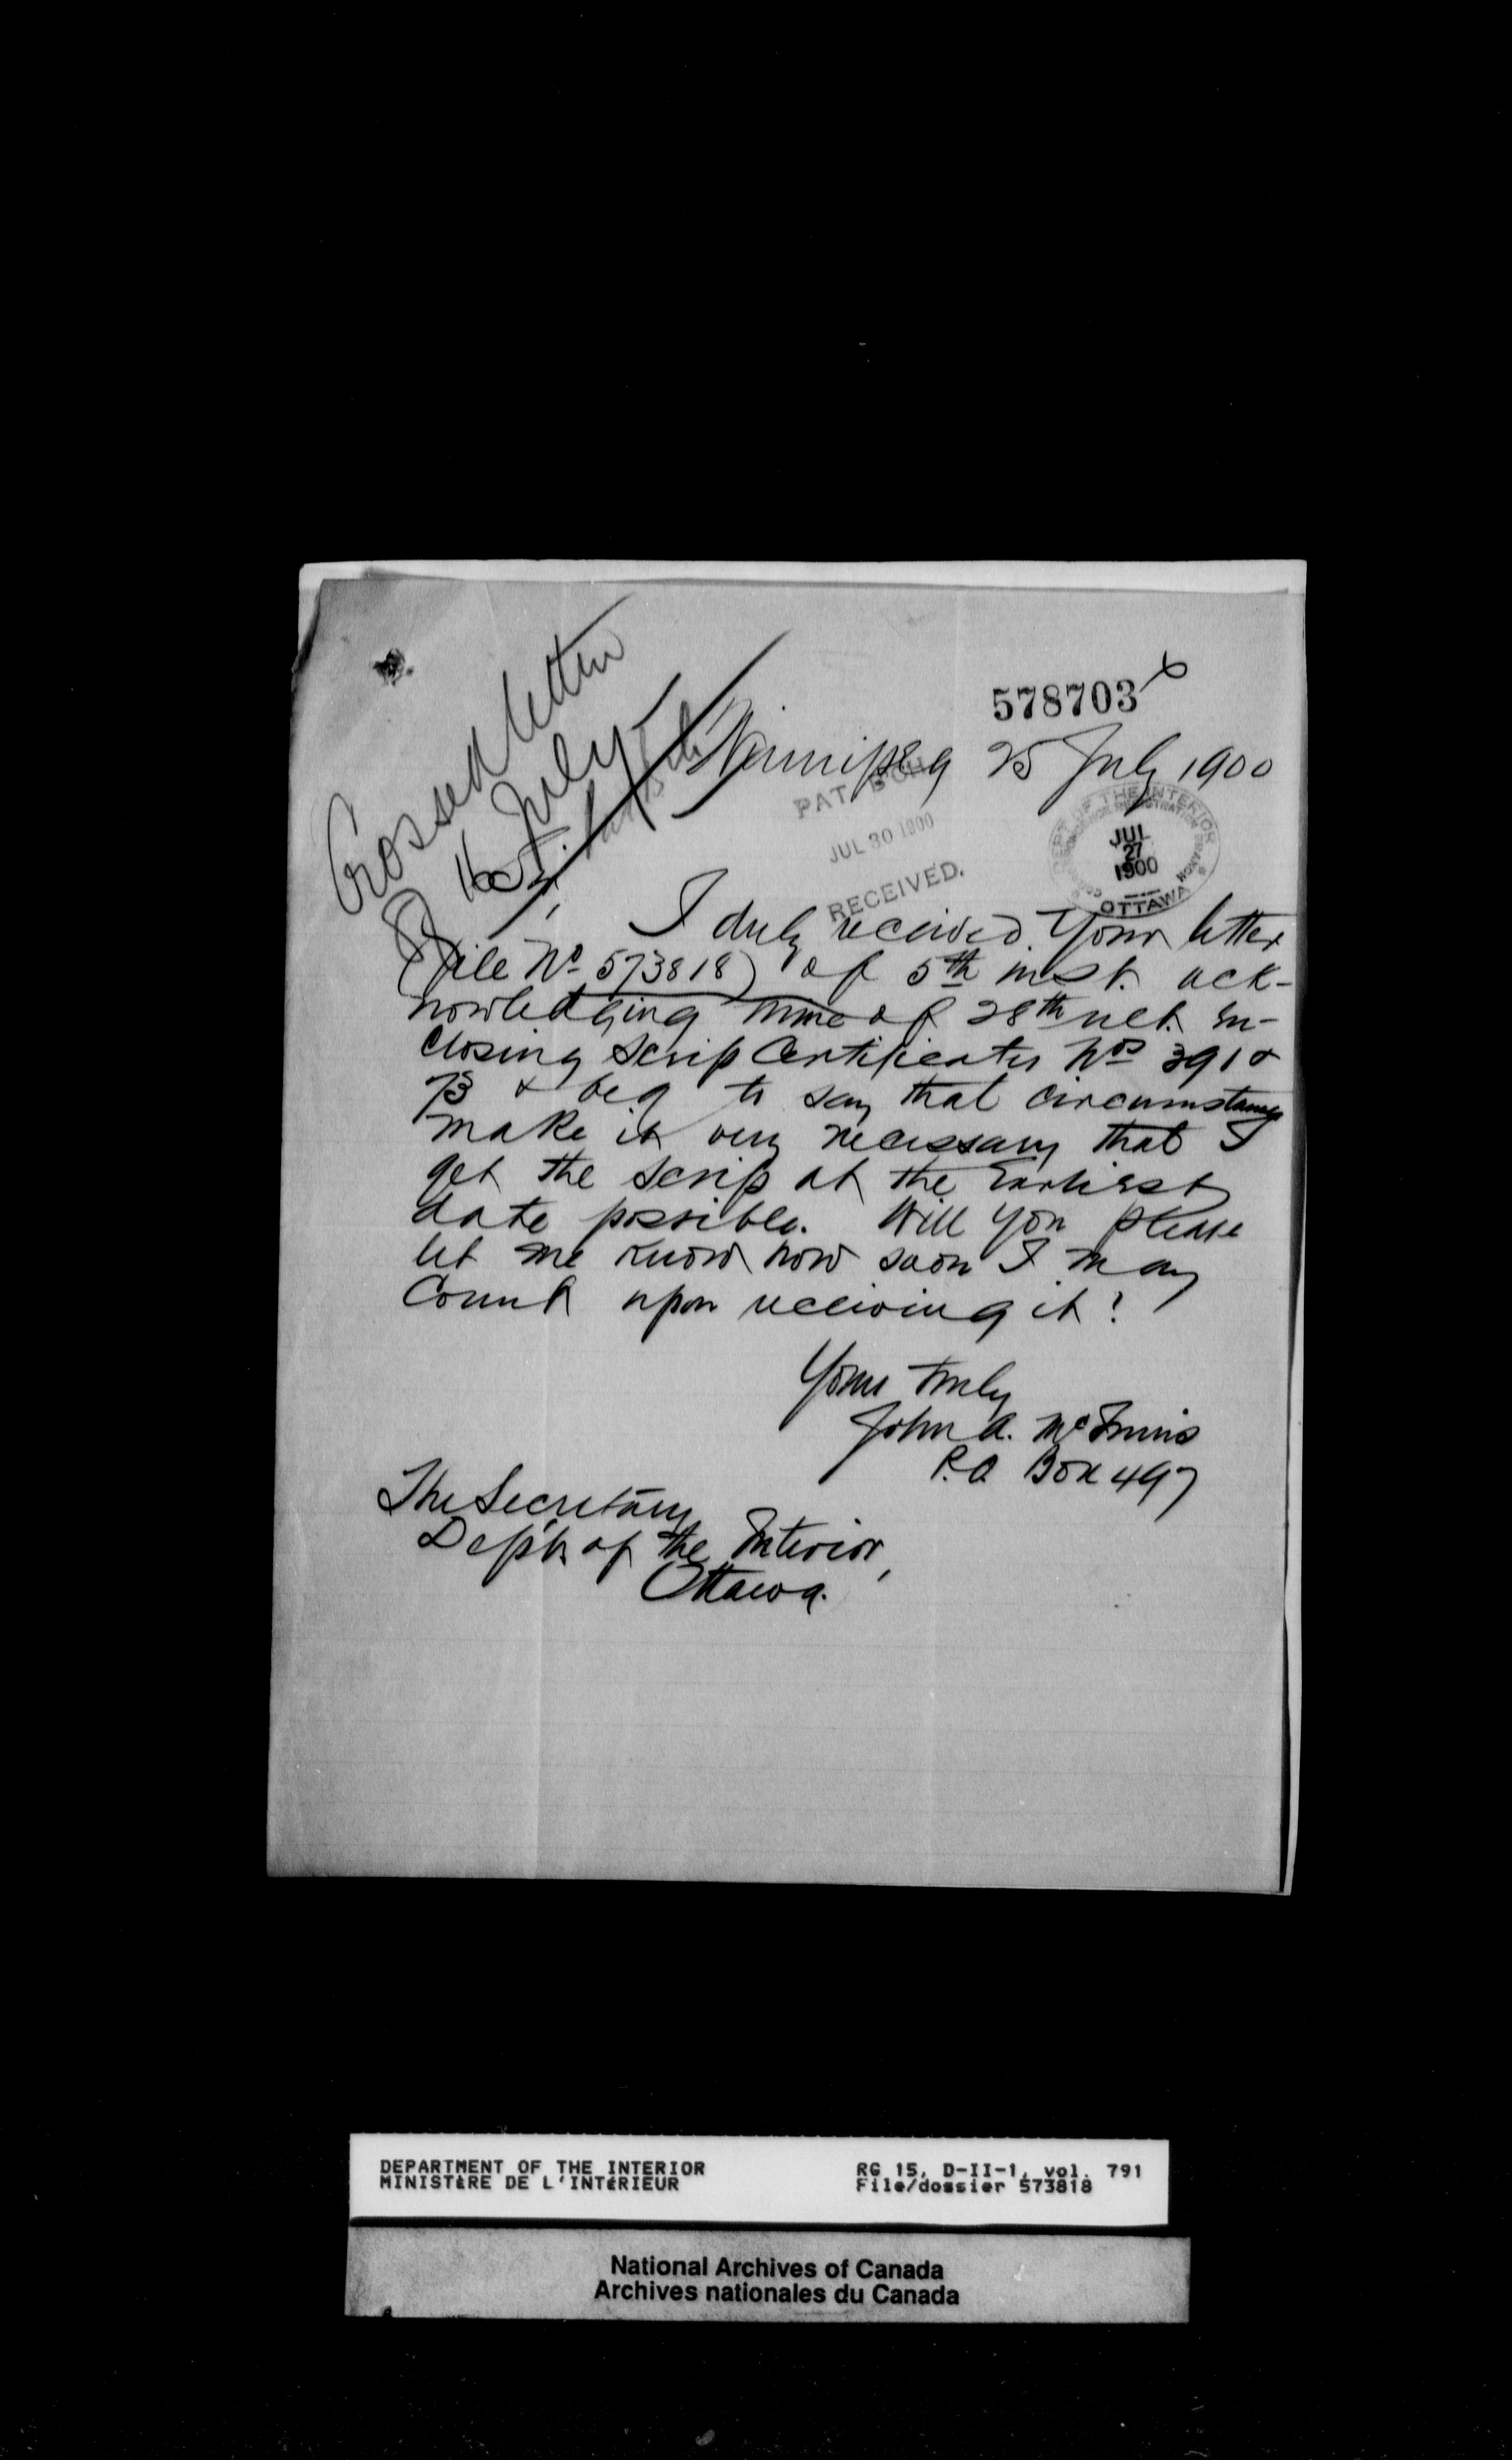 Crossed letter
16 July
578703
Winnipeg 25 July 1900
PAT. BCH
JUL 30 1900
RECEIVED.
DEPT OF THE INTERIOR
JUL
27
1900
OTTAWA
I duly received your letter
(File No 573818) of 5th inst. ack-
nowledging mine of 28th ult. en-
closing scrip Certificates Nos 391 &
73 & beg to say that circumstances
make it very necessary that I
get the scrip at the Earliest
date possible. Will you please
let me know how soon I may
Count upon receiving it?
Yours truly
John A. McInnis
P.O Box 497
The Secretary
Dep't of the Interior,
Ottawa.
DEPARTMENT OF THE INTERIOR
MINISTÈRE DE L'INTÉRIEUR
RG 15, D-II-1, vol. 791
File/dossier 573818
National Archives of Canada
Archives nationales du Canada